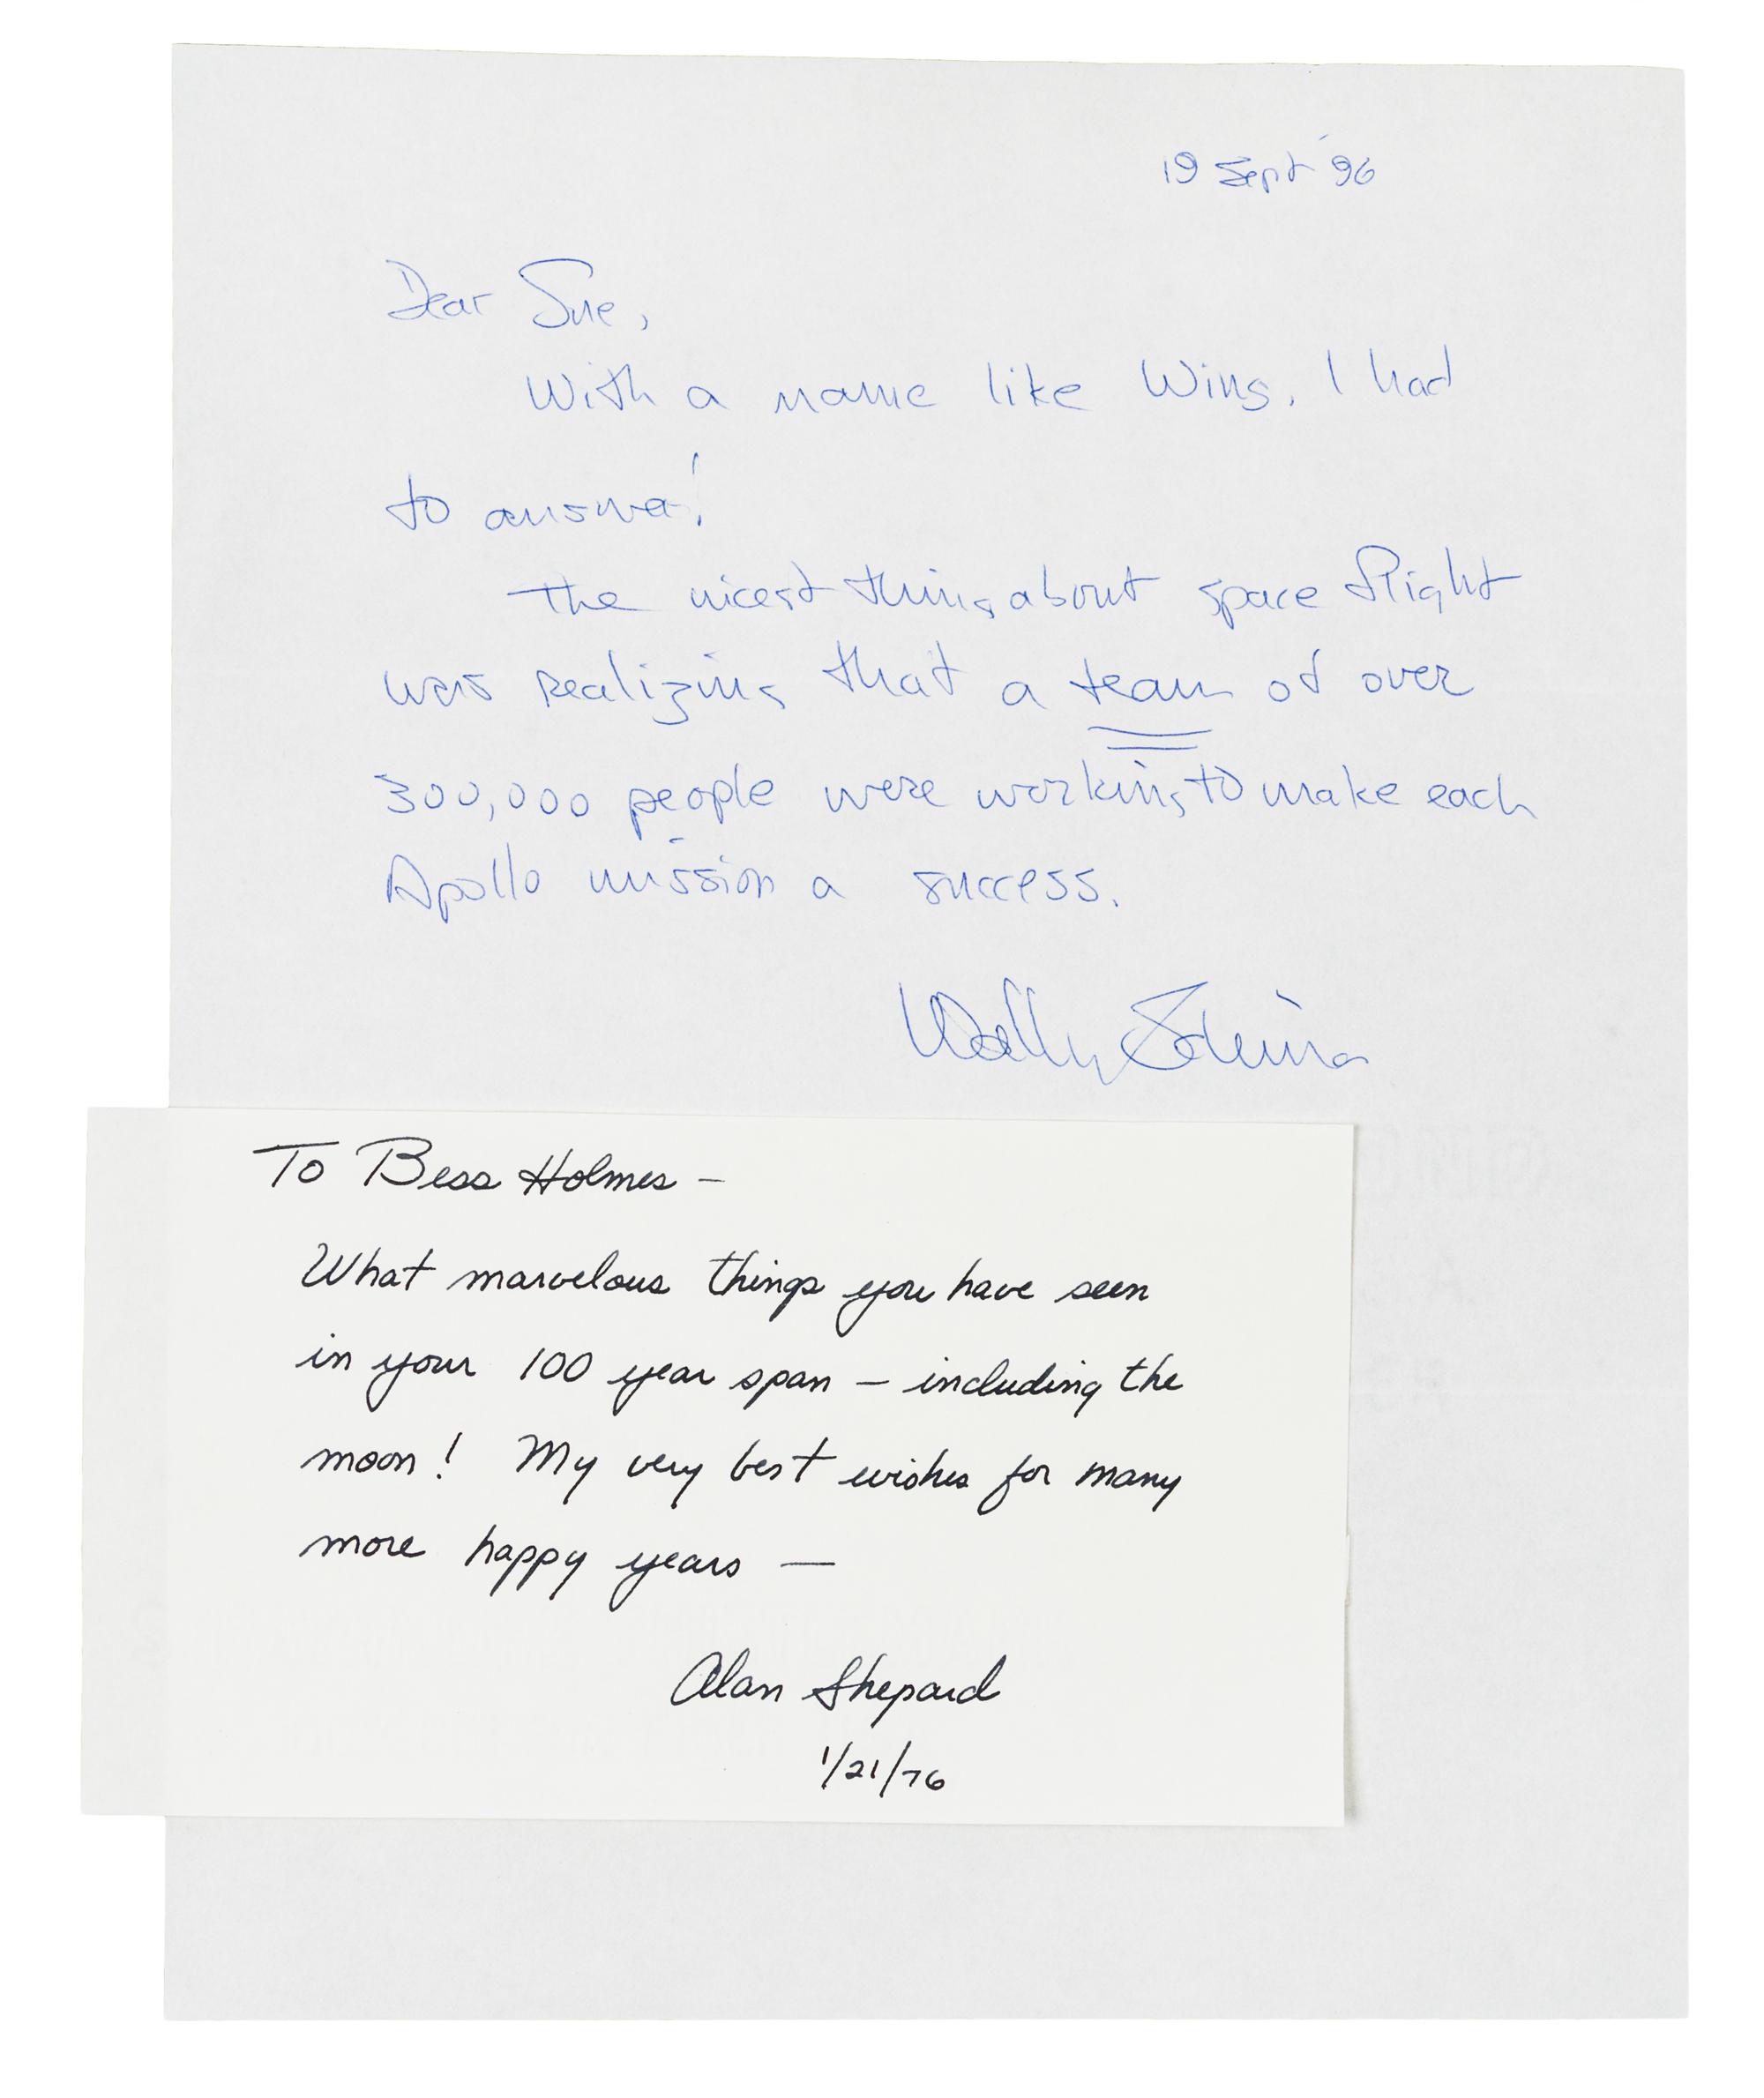 19 Sept '96
Dear Sue,
With a name like Wing, I had
to answer!
The nicest thing about space flight
was realizing that a team of over
300,000 people were working to make each
Apollo mission a success.
Wally Schirra
To Bess Holmes –
What marvelous things you have seen
in your 100 year span – including the
moon! My very best wishes for many
more happy years —
Alan Shepard
1/21/76